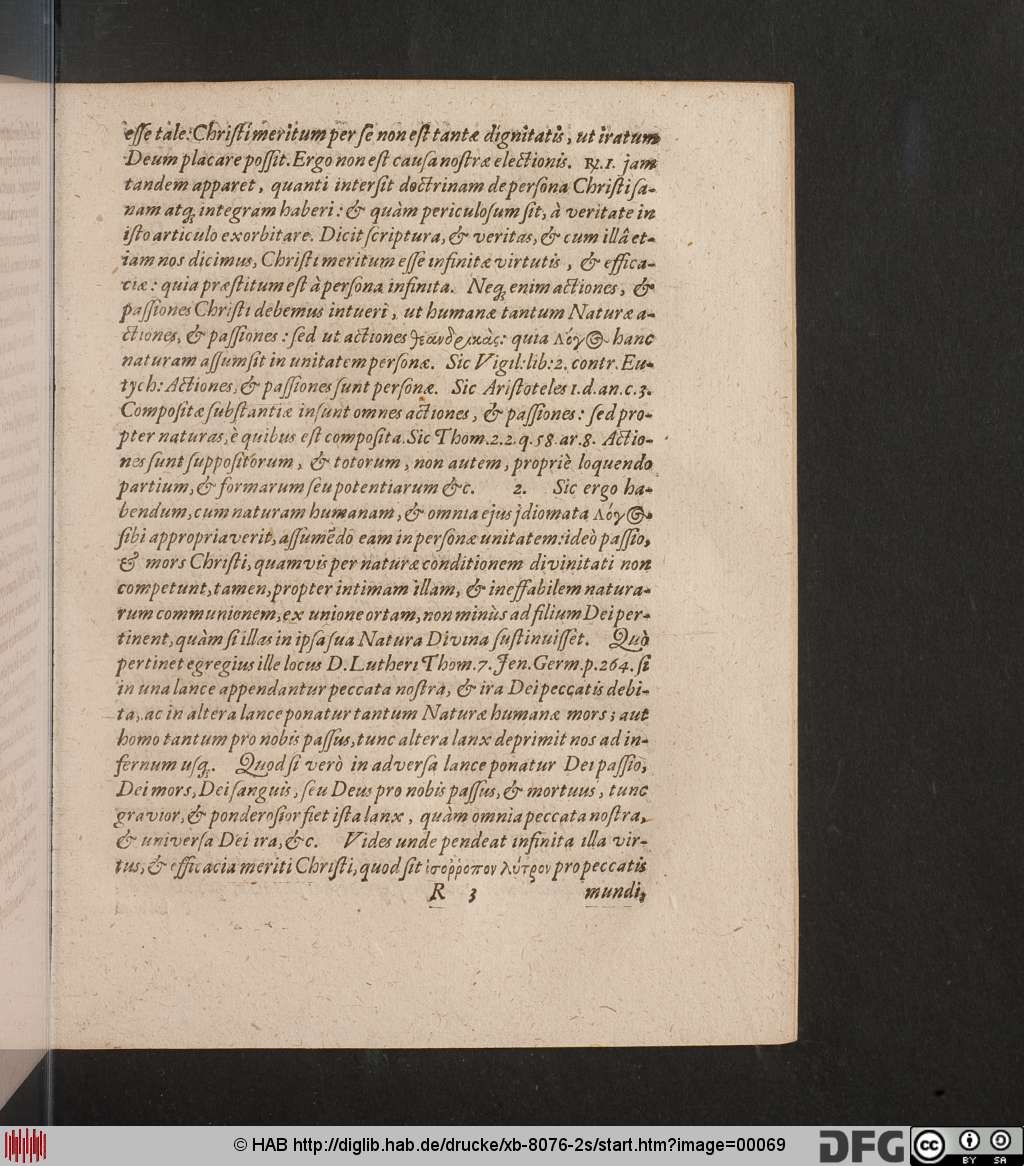 esse tale: Christi meritum per se non est tantæ dignitatis, ut iratum
Deum placare possit. Ergo non est causa nostræ electionis. ℞. 1. jam
tandem apparet, quanti intersit doctrinam de persona Christi sa-
nam atq; integram haberi: & quàm periculosum sit, à veritate in
isto articulo exorbitare. Dicit scriptura, & veritas, & cum illâ et-
iam nos dicimus, Christi meritum esse infinitæ virtutis, & effica-
ciæ: quia præstitum est à persona infinita. Neq; enim actiones, &
passiones Christi debemus intueri, ut humanæ tantum Naturæ a-
ctiones, & passiones: sed ut actiones θεανδρικὰς: quia Λόγ@ hanc
naturam assumsit in unitatem personæ. Sic Vigil: lib: 2. contr. Eu-
tych: Actiones, & passiones sunt personæ. Sic Aristoteles 1. d. an. c. 3.
Compositæ substantiæ insunt omnes actiones, & passiones: sed pro-
pter naturas, è quibus est composita. Sic Thom. 2. 2. q. 58. ar. 8. Actio-
nes sunt suppositorum, & totorum, non autem, propriè loquendo
partium, & formarum seu potentiarum &c. 2. Sic ergo ha-
bendum, cum naturam humanam, & omnia ejus jdiomata Λόγ@.
sibi appropriaverit, assumẽdo eam in personæ unitatem: ideò passio,
& mors Christi, quamvis per naturæ conditionem divinitati non
competunt, tamen, propter intimam illam, & ineffabilem natura-
rum communionem, ex unione ortam, non minùs ad filium Dei per-
tinent, quàm si illas in ipsa sua Natura Divina sustinuisset. Quò
pertinet egregius ille locus D. Lutheri Thom. 7. Jen. Germ. p. 264. si
in una lance appendantur peccata nostra, & ira Dei peccatis debi-
ta, ac in altera lance ponatur tantum Naturæ humanæ mors; aut
homo tantum pro nobis passus, tunc altera lanx deprimit nos ad in-
fernum usq;. Quod si verò in adversa lance ponatur Dei passio,
Dei mors, Dei sanguis, seu Deus pro nobis passus, & mortuus, tunc
gravior, & ponderosior fiet ista lanx, quàm omnia peccata nostra,
& universa Dei ira, &c. Vides unde pendeat infinita illa vir-
tus, & efficacia meriti Christi, quod sit ἰσόῤῥοπον λύτρον pro peccatis
R 3 mundi,
© HAB http://diglib.hab.de/drucke/xb-8076-2s/start.htm?image=00069
DFG
cc BY SA